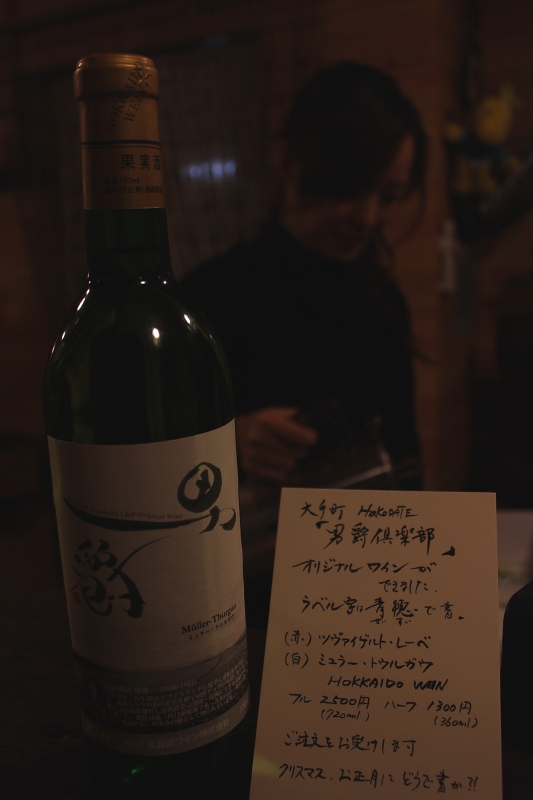 HOKKAIDO
WEIN
果実酒
男
爵
Club Original Wine
Müller-Thurgau
ミュラー・トゥルガウ
大手町 HAKODATE
「男爵倶楽部」
オリジナル ワインが
できました。
ラベル字は青穂で書。
(赤)ツヴァイゲルト・レーベ
(白)ミュラー・トゥルガウ
HOKKAIDO WEIN
フル 2500円 ハーフ 1300円
(720ml) (360ml)
ご注文をお受けします
クリスマス、お正月にどうですか?!